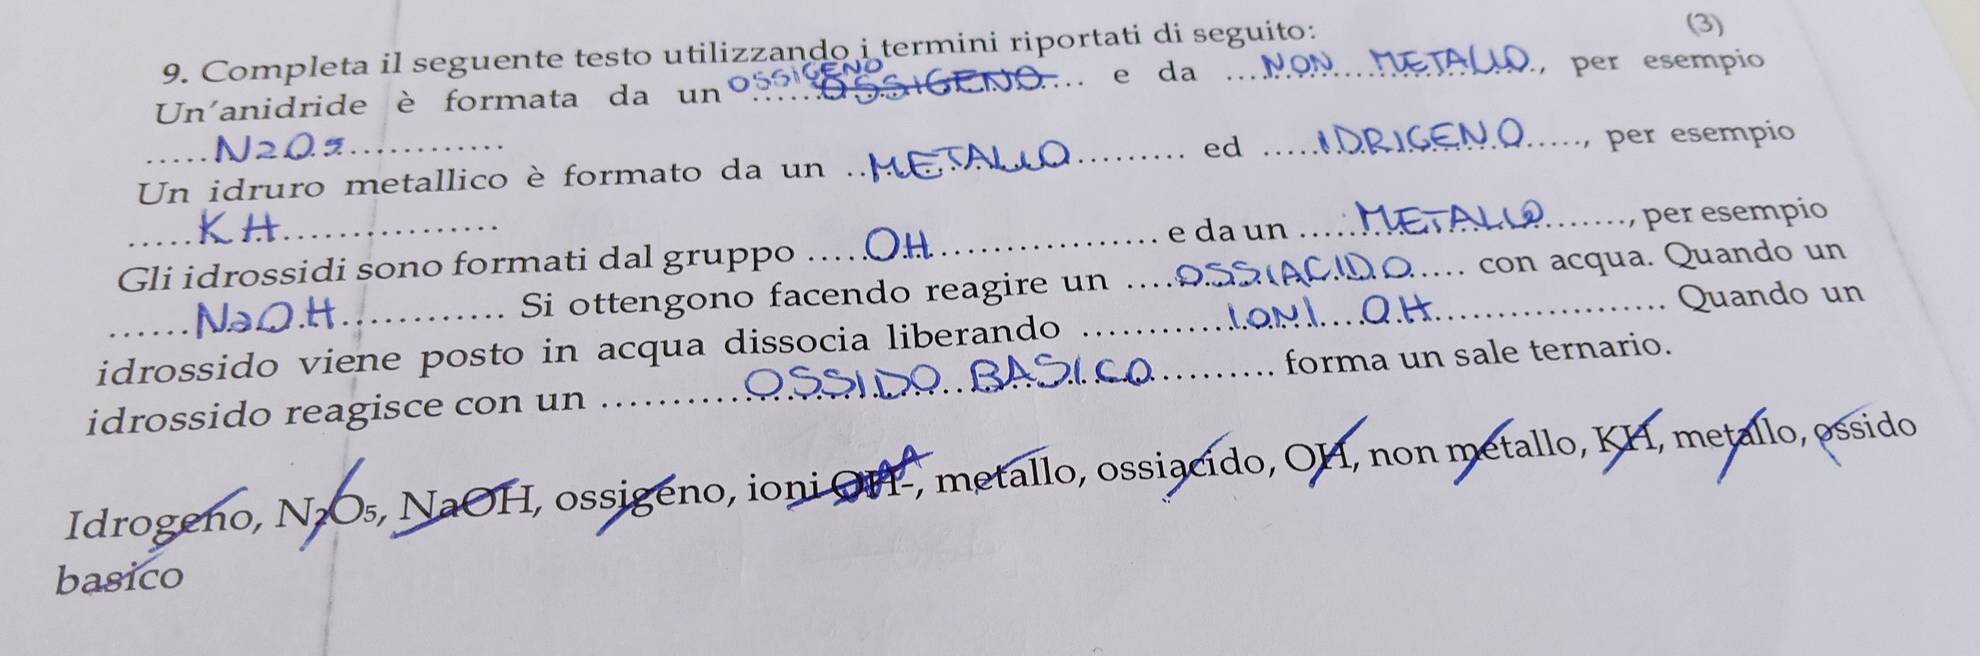 9. Completa il seguente testo utilizzando i termini riportati di seguito: (3)
Un'anidride è formata da un OSSIGENO OSSIGENO e da NON METALLO, per esempio
N2O5
Un idruro metallico è formato da un METALLO ed IDRIGENO, per esempio
KH
Gli idrossidi sono formati dal gruppo OH e da un METALLO, per esempio
NaOH Si ottengono facendo reagire un OSSIACIDO con acqua. Quando un
idrossido viene posto in acqua dissocia liberando IONI OH Quando un
idrossido reagisce con un OSSIDO BASICO forma un sale ternario.
Idrogeno, N2O5, NaOH, ossigeno, ioni OH-, metallo, ossiacido, OH, non metallo, KH, metallo, ossido
basico